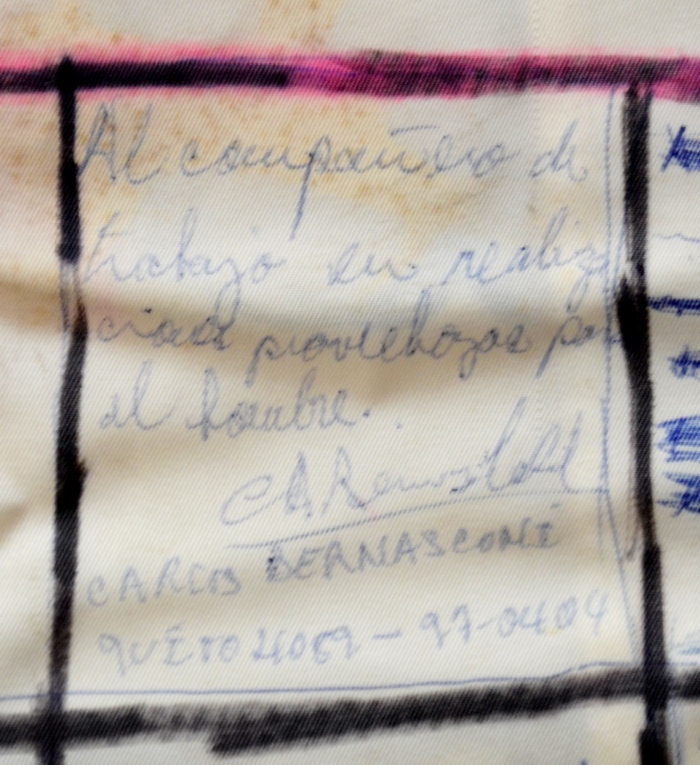 Al compañero de
trabajo en realiza
ciones provechozas para
el hombre.
CARLOS BERNASCONI
QUITO 4069 - 97-0404